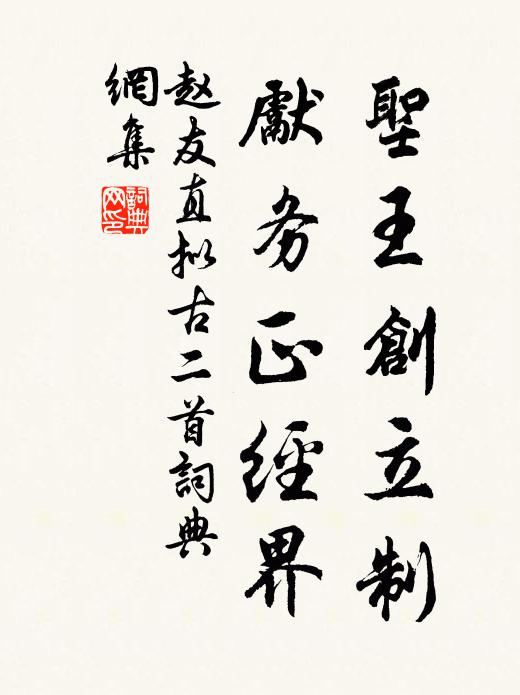 聖王創立制
獻务正經界
赵友直拟古二首詞典
網集
詞典
网印